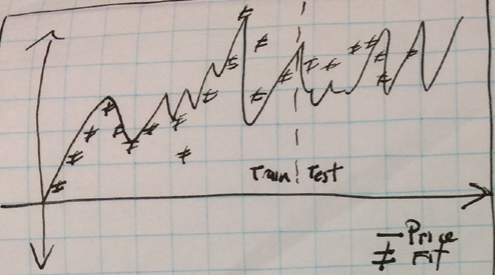 Train Test
Price
Fit